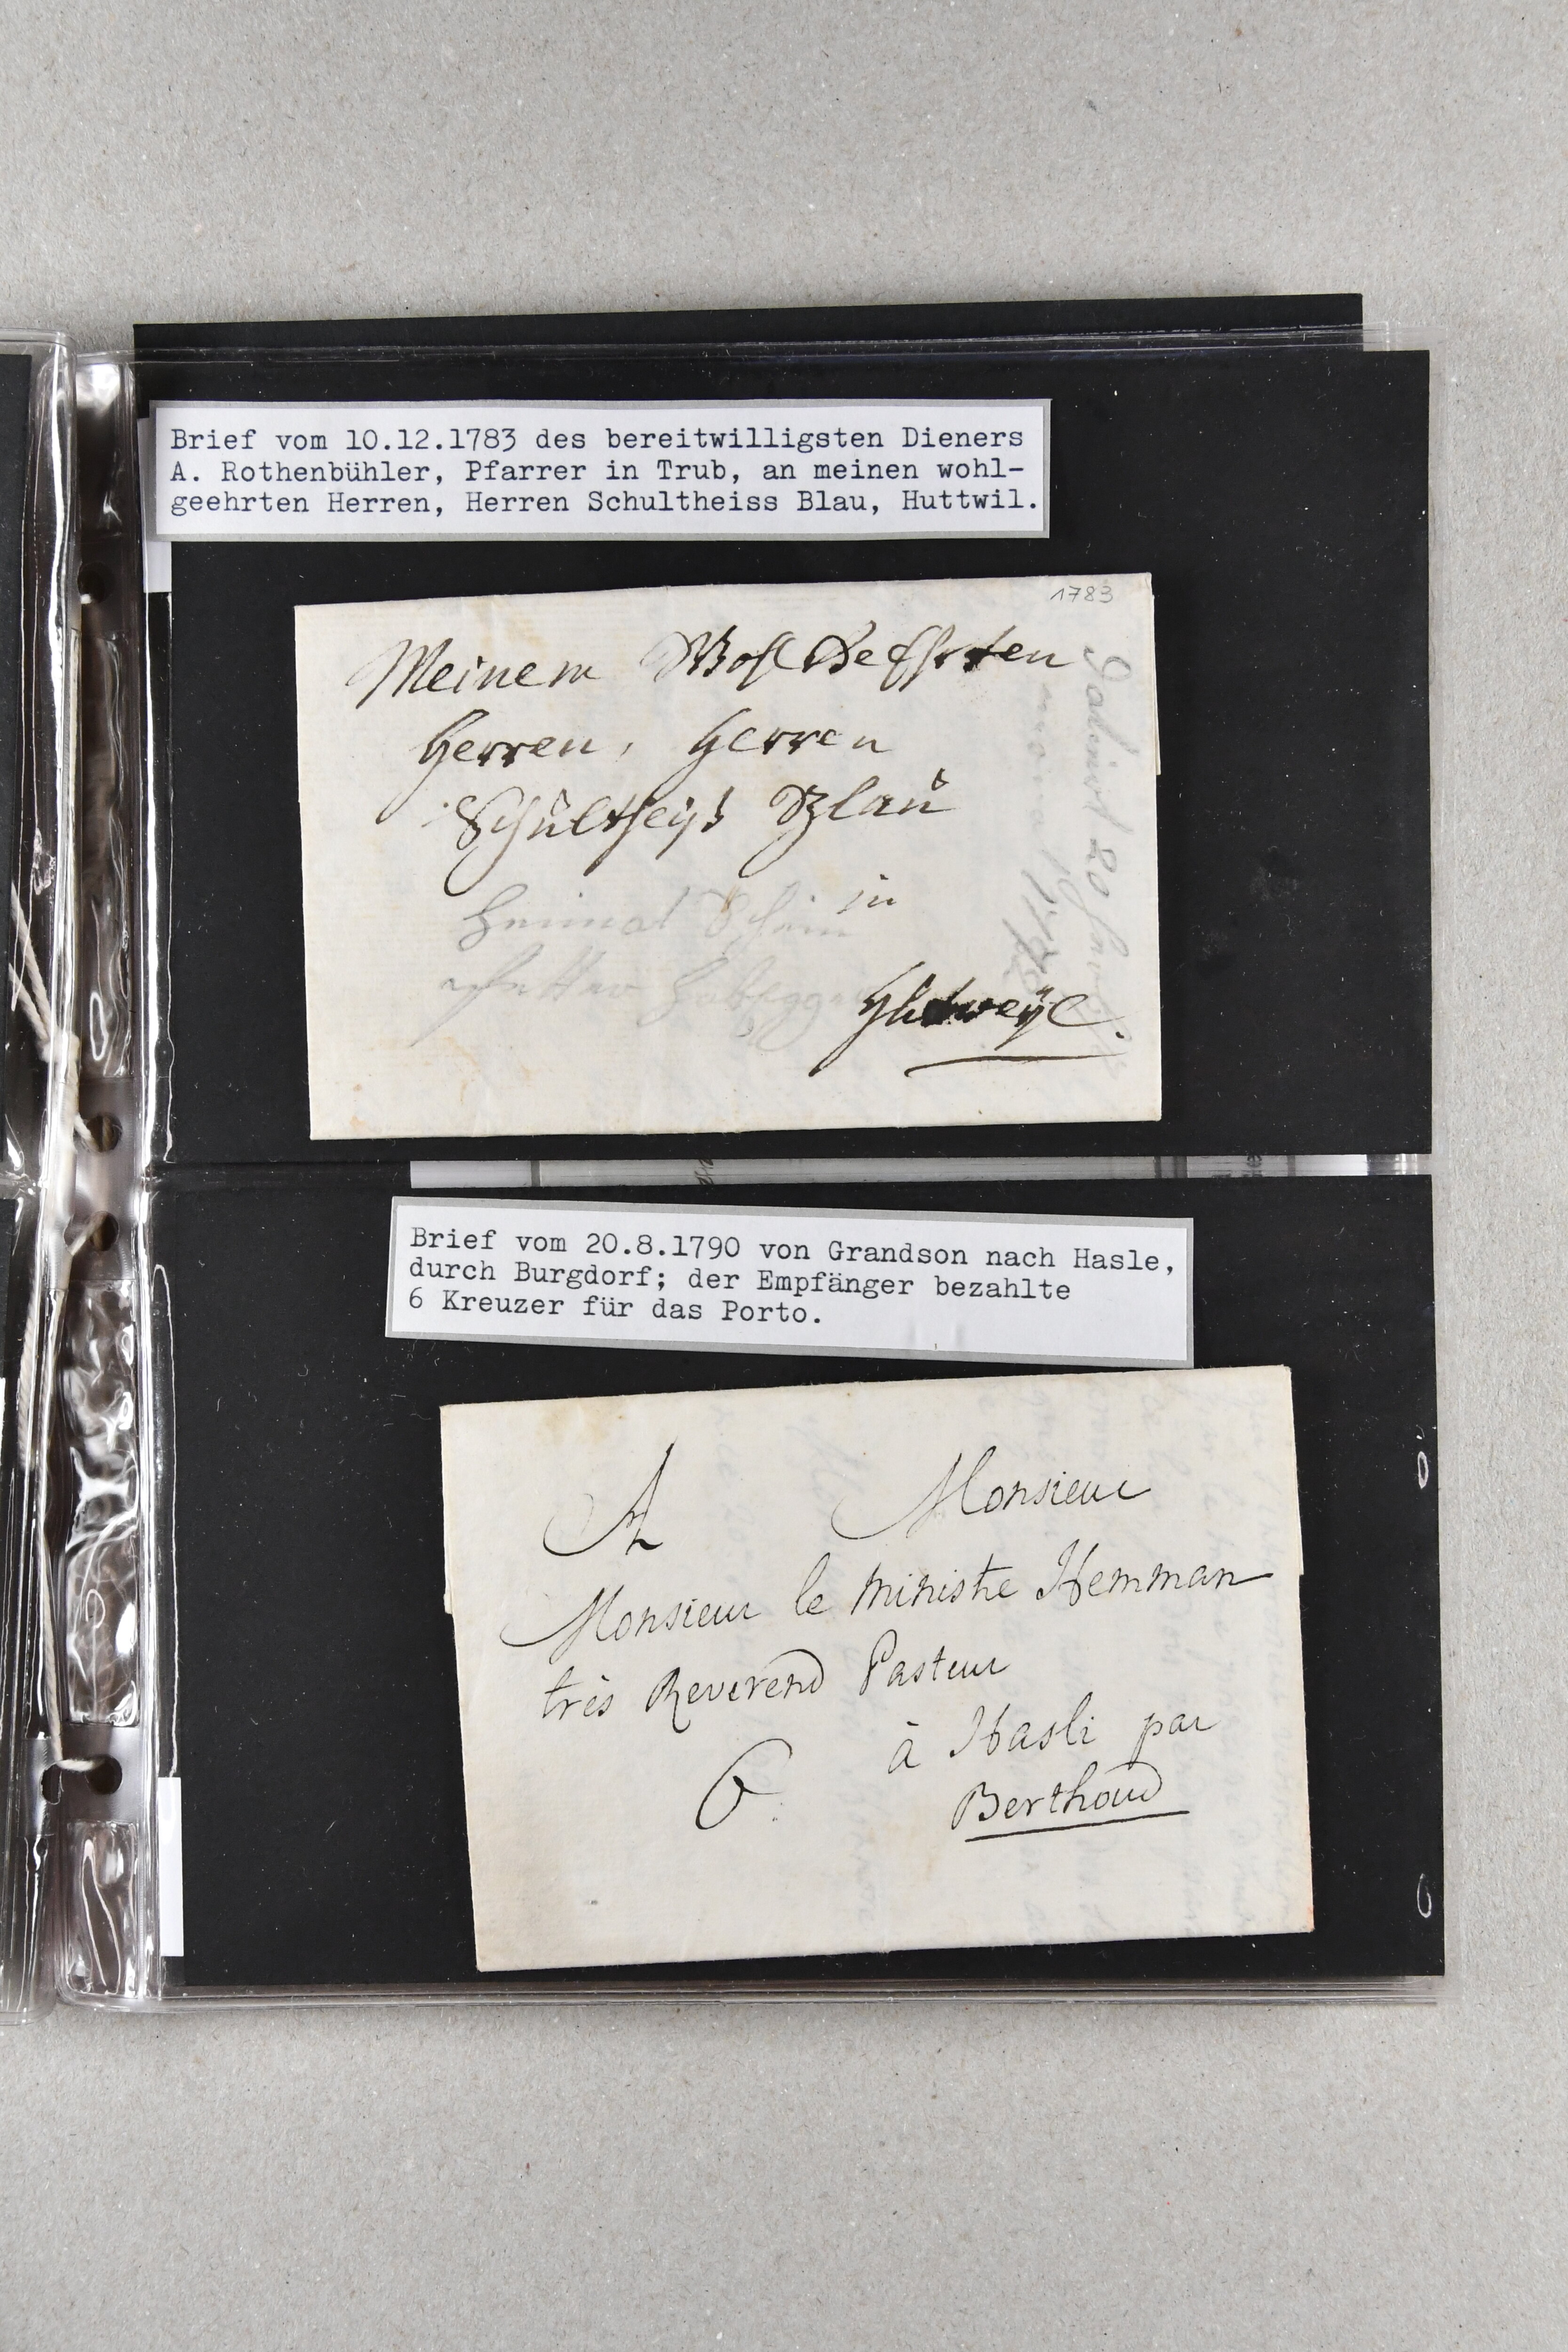 Brief vom 10.12.1783 des bereitwilligsten Dieners
A. Rothenbühler, Pfarrer in Trub, an meinen wohl-
geehrten Herren, Herren Schultheiss Blau, Huttwil.
1783
Meinem WohlGeEhrten
Herren, Herren
Schultheiß Blau
in
Heimat Schein
Brief vom 20.8.1790 von Grandson nach Hasle,
durch Burgdorf; der Empfänger bezahlte
6 Kreuzer für das Porto.
A Monsieur
Monsieur le ministre Hemman
très Reverend Pasteur
à Hasli par
6
Berthoud